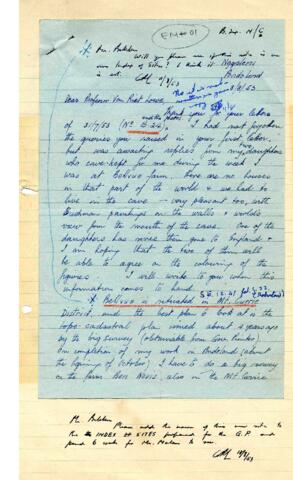 EM#01
Will you please
own Index of Sites? I think it
Nagaleni
Bondoland
3/8/53
Dear Professor Van Riet Lowe,
Thank you for your letters
of 31/7/53 (No. B 20/). I had not forgotten
the queries you raised in your first letter,
but was awaiting replies from my two daughters
who cave-kept for me during the week I
was at Belivo farm. There are no houses
in that part of the world & we had to
live in the cave - very pleasant too, with
Bushman paintings on the walls & world's
view from the mouth of the cave. One of the
daughters has since then gone to England &
I am hoping that the two of them will
be able to agree on the colouring of the
figures. I will write to you when this
information comes to hand.
Belivo is situated in Mt. Currie
District, and the best plan to look at is the
topo-cadastral plan issued about 2 years ago
by the Trig Survey (obtainable from Govt. Printer)
On completion of my work in Bondoland (about
the beginning of October) I have to do a big survey
on the farm Ben Nevis, also in the Mt Currie
Please add the name of this new site to
the INDEX OF SITES prepared for the G.P. and